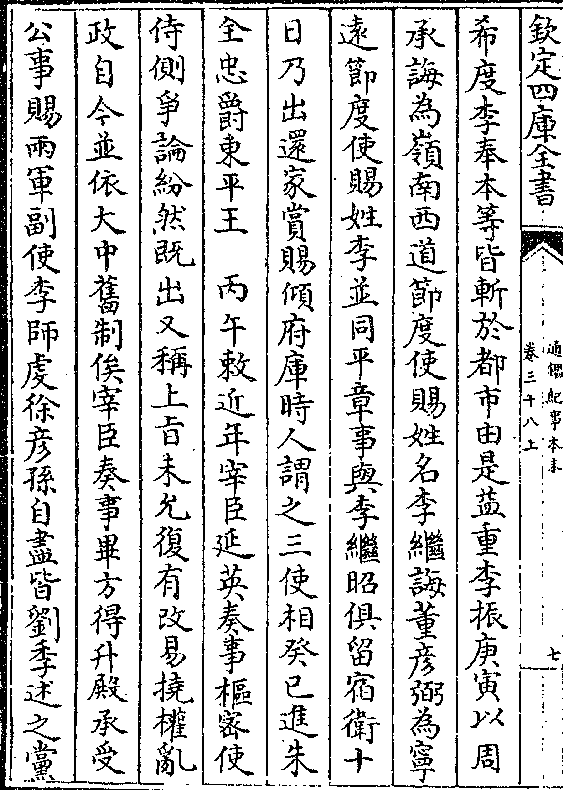 欽定四庫全書
通鑑紀事本末
卷三十八上
七
希度李奉本等皆斬於都市由是益重李振庚寅以周
承誨為嶺南西道節度使賜姓名李繼誨董彥弼為寧
遠節度使賜姓李並同平章事與李繼昭俱留宿衛十
日乃出還家賞賜傾府庫時人謂之三使相癸巳進朱
全忠爵東平王　丙午敕近年宰臣延英奏事樞密使
侍側爭論紛然既出又稱上旨未允復有改易撓權亂
政自令並依大中舊制俟宰臣奏事畢方得升殿承受
公事賜兩軍副使李師虔徐彥孫自盡皆劉季述之黨